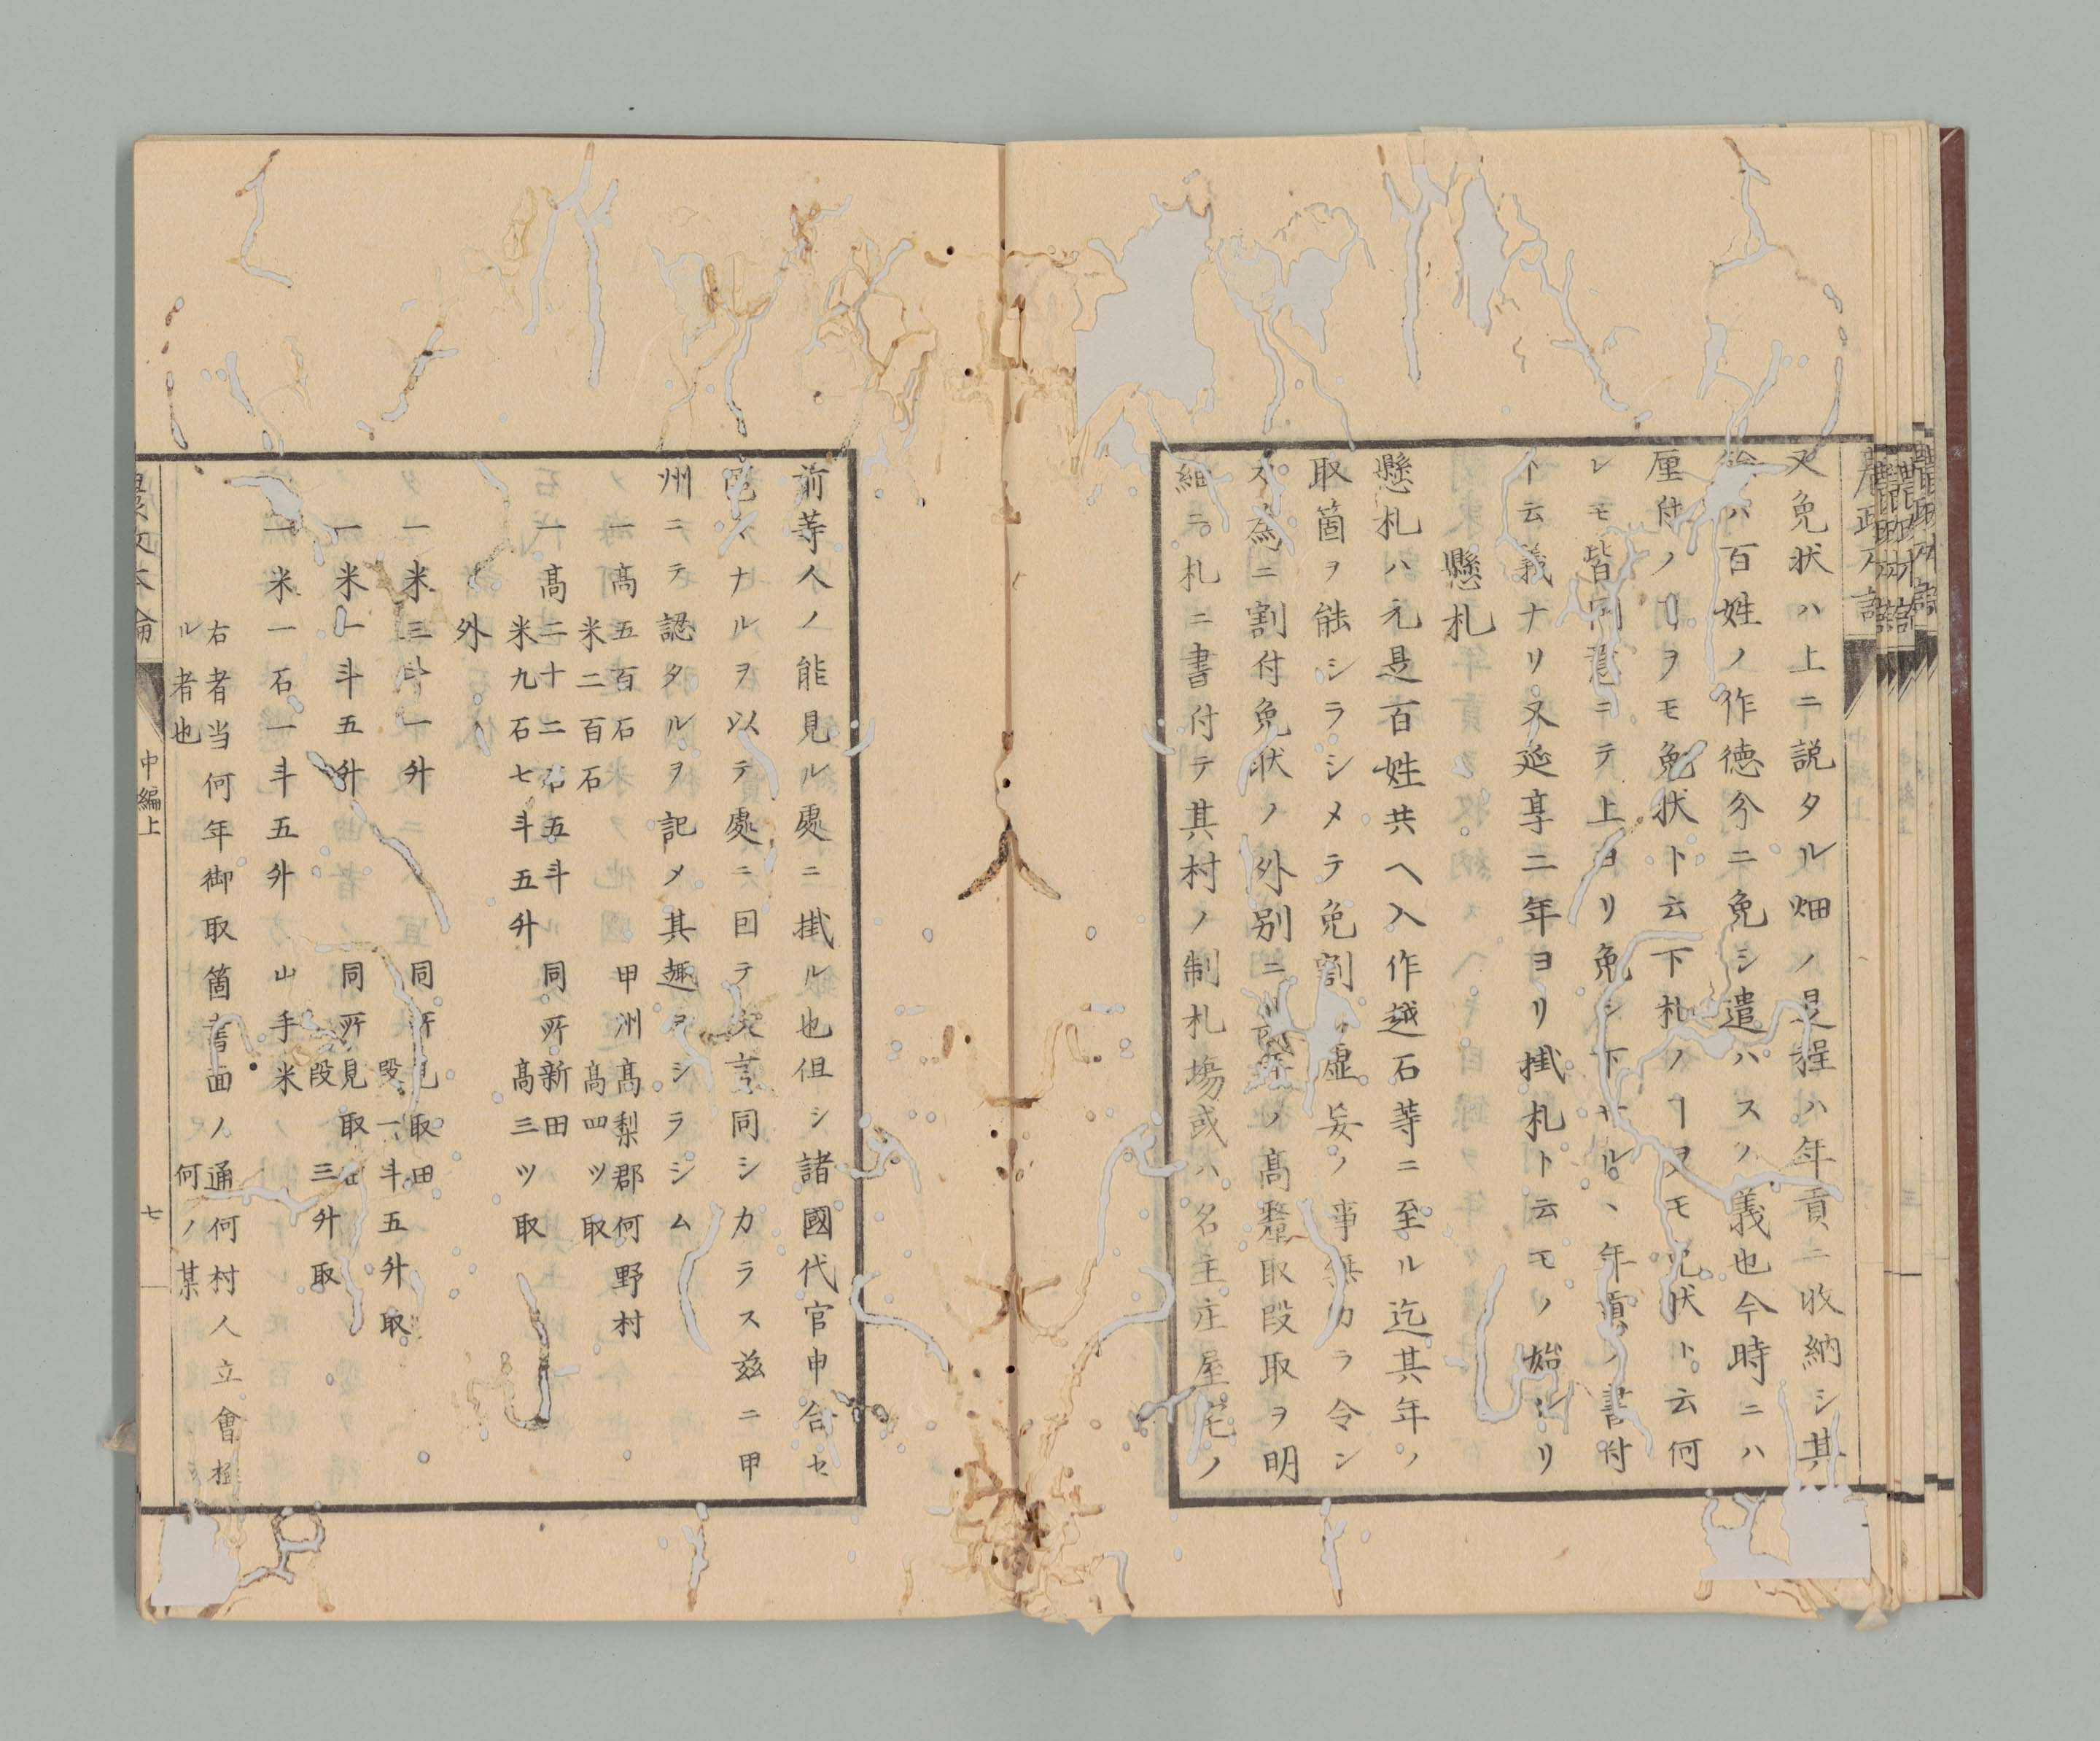 又免状ハ上ニ説タル畑ノ見程ハ年貢ニ收納シ其
ハ百姓ノ作徳分ニ免シ遣ハスノ義也今時ニハ
厘付ノヿヲモ免状ト云下札ノヿヲモ免状ト云何
レモ皆同意ニテ上ヨリ免シ下サルヽ年貢ノ書付
ト云義ナリ又延享二年ヨリ掛札ト云モノ始レリ
懸札
懸札ハ元是百姓共ヘ入作越石等ニ至ル迄其年ノ
取箇ヲ能シラシメテ免割虚妄ノ事無カラ令シ
為ニ割付免状ノ外別ニノ髙釐取段取ヲ明
細ニ札ニ書付テ其村ノ制札塲或ハ名主庄屋宅ノ
前等人ノ能見ル處ニ掛ル也但シ諸國代官申合セ
ナルヲ以テ處ニ囙テ文言同シカラス茲ニ甲
州ニテ認タルヲ記メ其趣ヲシラシム
一髙五百石 甲洲髙梨郡何野村
米二百石 髙四ツ取
一髙二十二石五斗 同所新田
米九石七斗五升 髙三ツ取
外
一米三斗一升 同所見取田
段一斗五升取
一米一斗五升 同所見取畑
段三升取
一米一石一斗五升 山手米
右者当何年御取箇書面ノ通何村人立會極
ル者也 何ノ某
農政本論
中編上
七